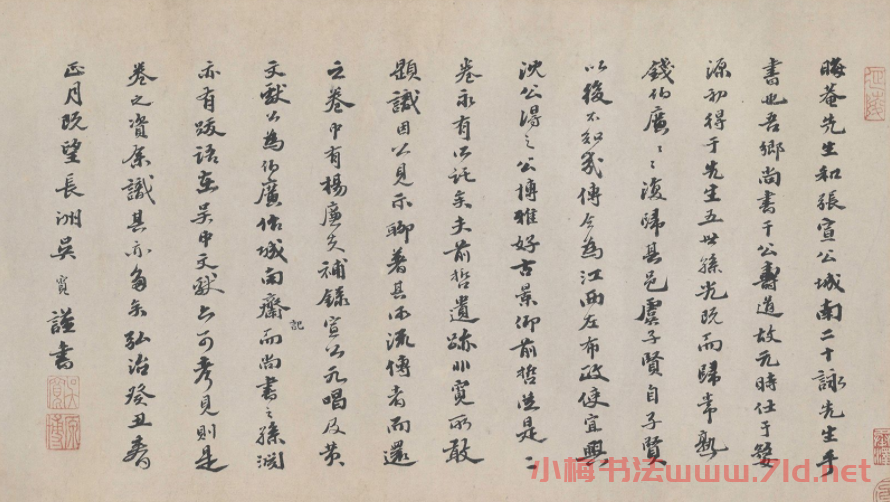 晦菴先生和張宣公城南二十詠先生手
書也吾鄉尚書干公壽道故元時仕于婺
源初得于先生五世孫光既而歸常熟
錢伯廣〻〻復歸其邑虞子賢自子賢
以後不知幾傳今為江西左布政使宜興
沈公得之公博雅好古景仰前哲並是二
卷永有所託矣夫前哲遺跡非寬所敢
題識因公見示聊著其所流傳者而還
之卷中有楊廉夫補錄宣公元唱及黃
文獻公為伯廣作城南齋記而尚書之孫淵
亦有跋語在吳中文獻亦可考見則是
卷之資余識其亦多矣弘治癸丑春
正月既望長洲吳寬謹書
吳寬
原博
小梅书法www.7ld.net